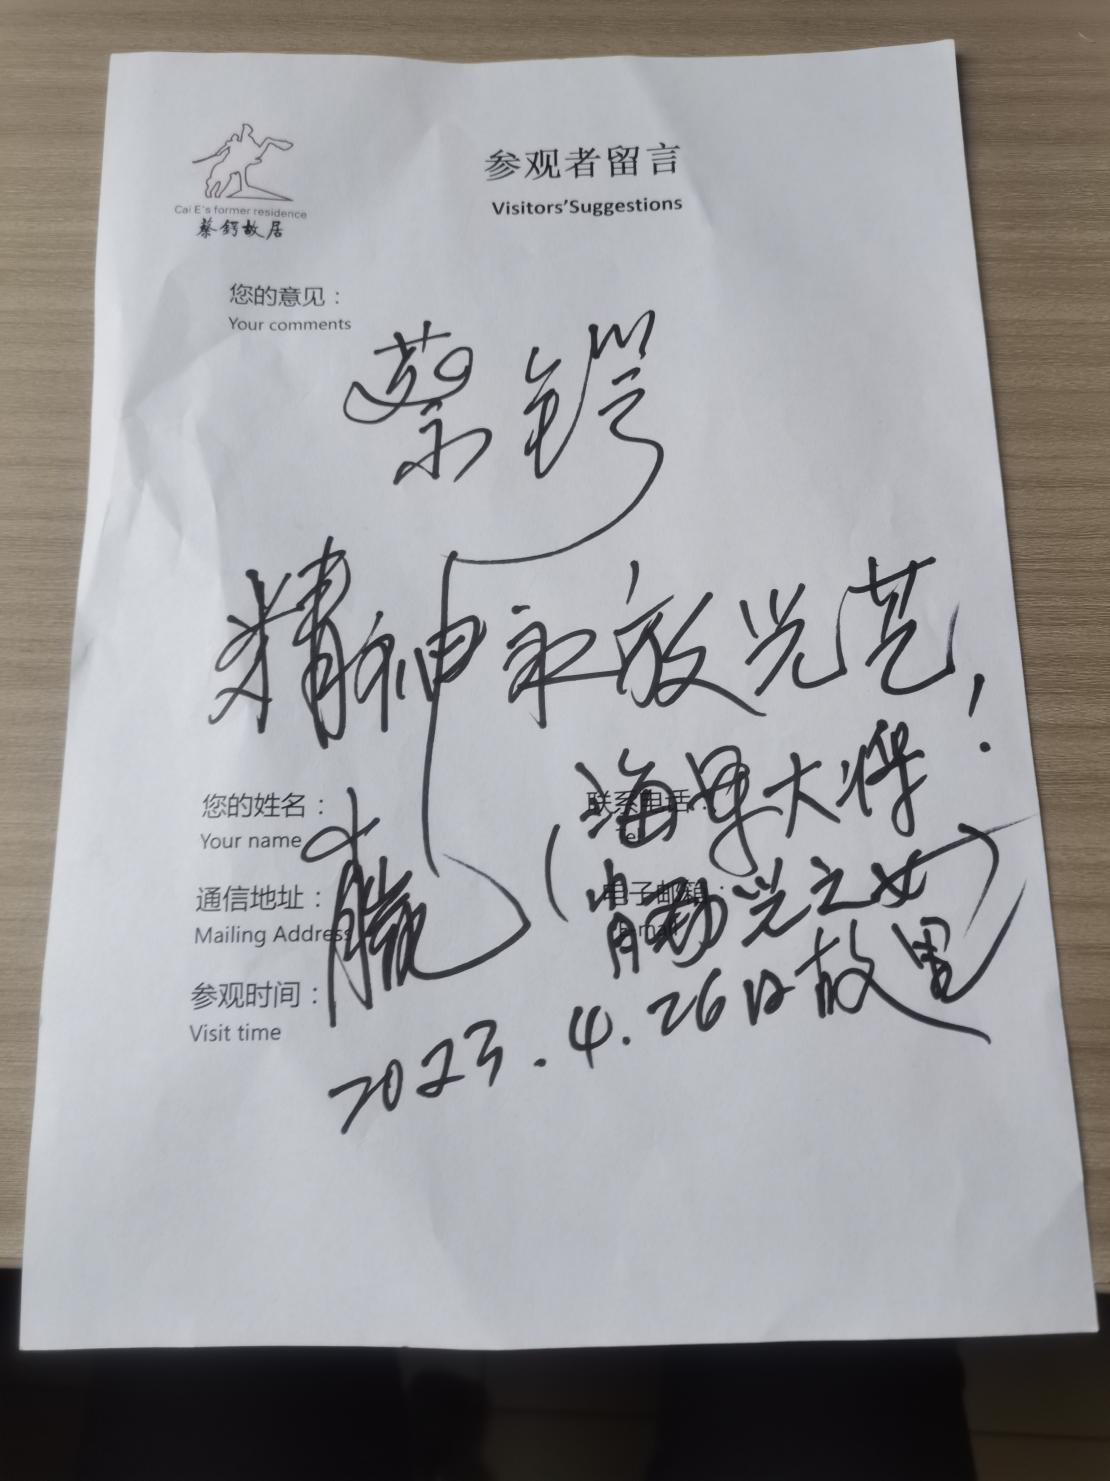 Cai E's former residence
蔡锷故居
参观者留言
Visitors'Suggestions
您的意见：
Your comments
蔡锷
精神永放光芒！
您的姓名：
Your name
联系电话：
Tel
（海军大将
通信地址：
Mailing Address
电子邮箱：
E-mail
肖劲光之女）
参观时间：
Visit time
2023.4.26日故居